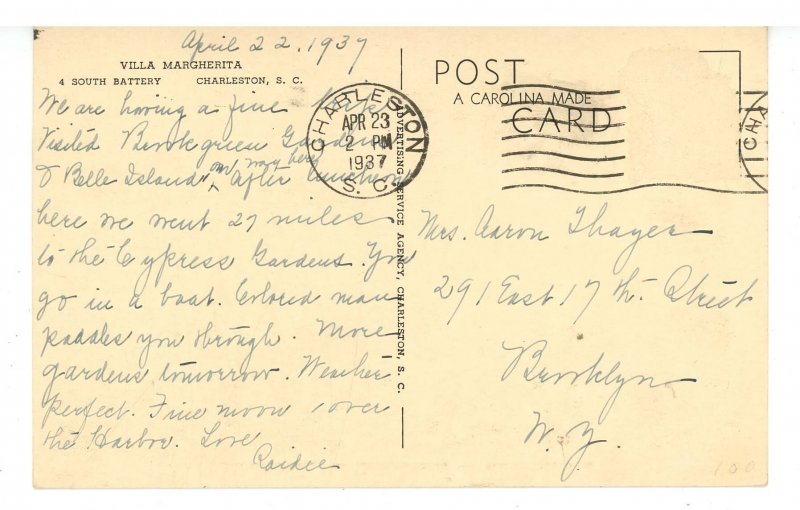 April 22, 1937
VILLA MARGHERITA
4 SOUTH BATTERY CHARLESTON, S. C.
We are having a fine trip.
Visited Brookgreen Gardens
& Belle Island on way here. After luncheon
here we went 27 miles
to the Cypress Gardens. You
go in a boat. Colored man
paddles you through. More
gardens tomorrow. Weather
perfect. Fine moon over
the Harbor. Love
ADVERTISING SERVICE AGENCY, CHARLESTON, S. C.
CHARLESTON
APR 23
2 PM
1937
S. C.
POST
A CAROLINA MADE
CARD
CHA
Mrs. Aaron Thayer
291 East 17 th. Street
Brooklyn
N. Y.
100